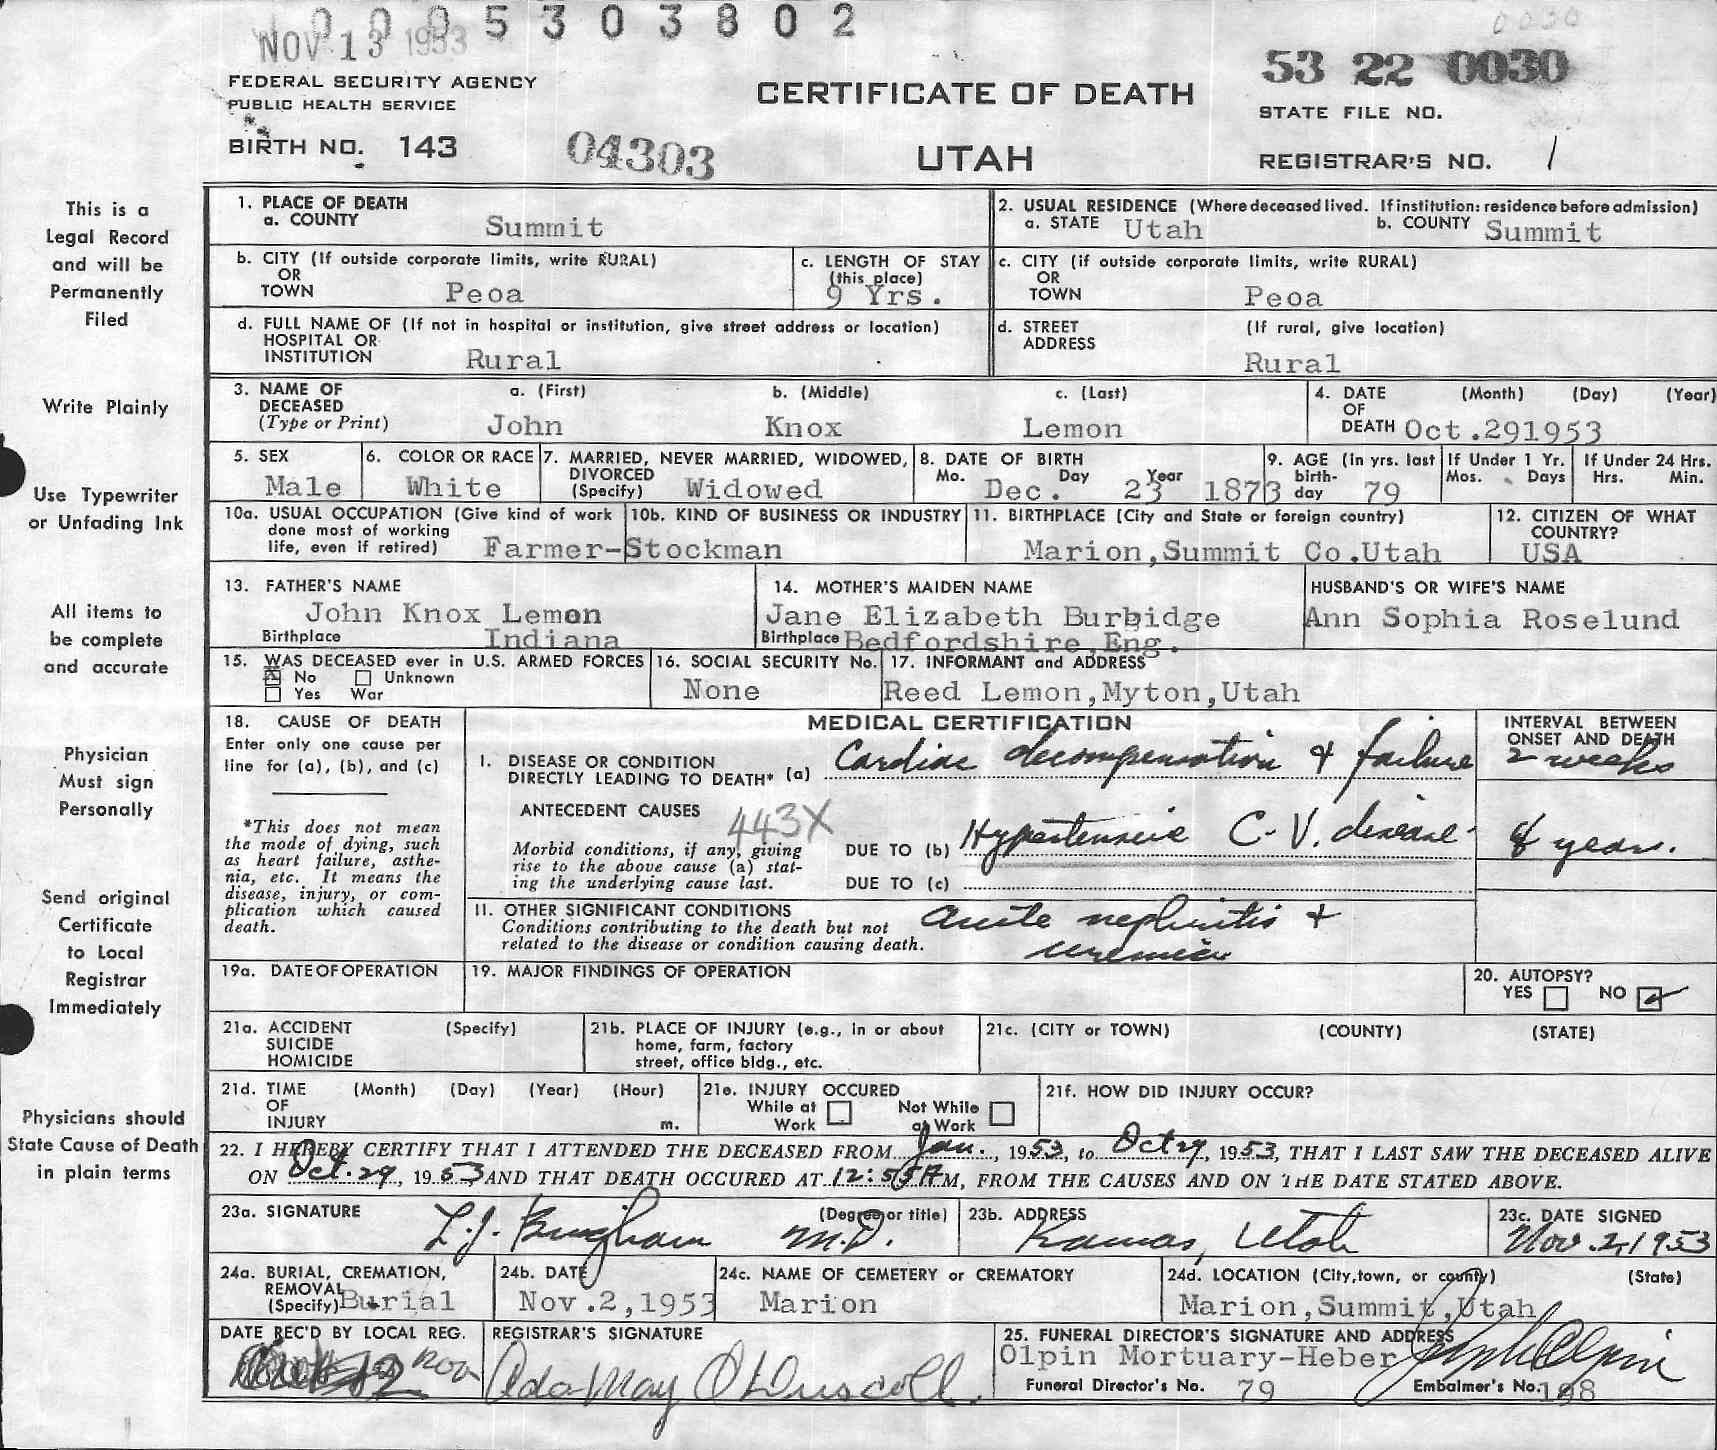 0005303802
NOV 13 1953
0030
53 22 0030
FEDERAL SECURITY AGENCY
PUBLIC HEALTH SERVICE
CERTIFICATE OF DEATH
STATE FILE NO.
BIRTH NO. 143
04303
UTAH
REGISTRAR'S NO. 1
This is a
Legal Record
and will be
Permanently
Filed
Write Plainly
Use Typewriter
or Unfading Ink
All items to
be complete
and accurate
Physician
Must sign
Personally
Send original
Certificate
to Local
Registrar
Immediately
Physicians should
State Cause of Death
in plain terms
1. PLACE OF DEATH
a. COUNTY Summit
2. USUAL RESIDENCE (Where deceased lived. If institution: residence before admission)
a. STATE Utah b. COUNTY Summit
b. CITY (If outside corporate limits, write RURAL)
OR
TOWN Peoa
c. LENGTH OF STAY
(this place)
9 Yrs.
c. CITY (if outside corporate limits, write RURAL)
OR
TOWN Peoa
d. FULL NAME OF (If not in hospital or institution, give street address or location)
HOSPITAL OR
INSTITUTION Rural
d. STREET (If rural, give location)
ADDRESS
Rural
3. NAME OF a. (First) b. (Middle) c. (Last)
DECEASED
(Type or Print) John Knox Lemon
4. DATE (Month) (Day) (Year)
OF
DEATH Oct.291953
5. SEX
Male
6. COLOR OR RACE
White
7. MARRIED, NEVER MARRIED, WIDOWED,
DIVORCED
(Specify) Widowed
8. DATE OF BIRTH
Mo. Day Year
Dec. 23 1873
9. AGE (in yrs. last
birth-
day 79
If Under 1 Yr.
Mos. Days
If Under 24 Hrs.
Hrs. Min.
10a. USUAL OCCUPATION (Give kind of work
done most of working
life, even if retired) Farmer-Stockman
10b. KIND OF BUSINESS OR INDUSTRY
11. BIRTHPLACE (City and State or foreign country)
Marion,Summit Co.Utah
12. CITIZEN OF WHAT
COUNTRY?
USA
13. FATHER'S NAME
John Knox Lemon
Birthplace Indiana
14. MOTHER'S MAIDEN NAME
Jane Elizabeth Burbidge
Birthplace Bedfordshire,Eng.
HUSBAND'S OR WIFE'S NAME
Ann Sophia Roselund
15. WAS DECEASED ever in U.S. ARMED FORCES
X No Unknown
Yes War
16. SOCIAL SECURITY No.
None
17. INFORMANT and ADDRESS
Reed Lemon,Myton,Utah
18. CAUSE OF DEATH
Enter only one cause per
line for (a), (b), and (c)
*This does not mean
the mode of dying, such
as heart failure, asthe-
nia, etc. It means the
disease, injury, or com-
plication which caused
death.
MEDICAL CERTIFICATION
INTERVAL BETWEEN
ONSET AND DEATH
I. DISEASE OR CONDITION
DIRECTLY LEADING TO DEATH* (a) Cardiac decompensation & failure 2 weeks
ANTECEDENT CAUSES
443X
Morbid conditions, if any, giving
rise to the above cause (a) stat-
ing the underlying cause last.
DUE TO (b) Hypertensive C-V. disease. years.
DUE TO (c)
II. OTHER SIGNIFICANT CONDITIONS
Conditions contributing to the death but not
related to the disease or condition causing death.
acute nephritis &
uremia
19a. DATE OF OPERATION
19. MAJOR FINDINGS OF OPERATION
20. AUTOPSY?
YES NO
21a. ACCIDENT (Specify)
SUICIDE
HOMICIDE
21b. PLACE OF INJURY (e.g., in or about
home, farm, factory
street, office bldg., etc.
21c. (CITY or TOWN) (COUNTY) (STATE)
21d. TIME (Month) (Day) (Year) (Hour)
OF
INJURY m.
21e. INJURY OCCURED
While at Not While
Work at Work
21f. HOW DID INJURY OCCUR?
22. I HEREBY CERTIFY THAT I ATTENDED THE DECEASED FROM Jan., 1953, to Oct 29, 1953, THAT I LAST SAW THE DECEASED ALIVE
ON Oct. 29, 1953 AND THAT DEATH OCCURED AT 12:55 A M, FROM THE CAUSES AND ON THE DATE STATED ABOVE.
23a. SIGNATURE (Degree or title)
L.J. Bingham M.D.
23b. ADDRESS
Kamas, Utah
23c. DATE SIGNED
Nov. 2, 1953
24a. BURIAL, CREMATION,
REMOVAL
(Specify) Burial
24b. DATE
Nov.2,1953
24c. NAME OF CEMETERY or CREMATORY
Marion
24d. LOCATION (City, town, or county) (State)
Marion,Summit,Utah
DATE REC'D BY LOCAL REG.
12 Nov
REGISTRAR'S SIGNATURE
Ada May O'Driscoll.
25. FUNERAL DIRECTOR'S SIGNATURE AND ADDRESS
Olpin Mortuary-Heber
Funeral Director's No. 79 Embalmer's No. 198